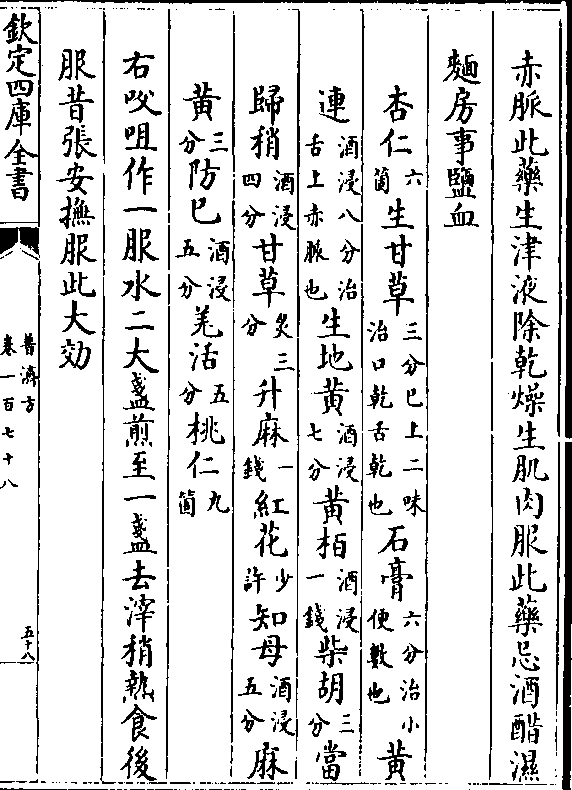 赤脈此藥生津液除乾燥生肌肉服此藥忌酒醋濕
麵房事鹽血
杏仁六箇生甘草三分巳上二味治口乾舌乾也石膏六分治小便數也黃
連酒浸八分治舌上赤脈也生地黃酒浸七分黃栢酒浸一錢柴胡三分當
歸稍酒浸四分甘草炙三分升麻一錢紅花少許知母酒浸五分麻
黃三分防巳酒浸五分羌活五分桃仁九箇
右㕮咀作一服水二大盞煎至一盞去滓稍熱食後
服昔張安撫服此大効
欽定四庫全書
普濟方
卷一百七十八
五十八